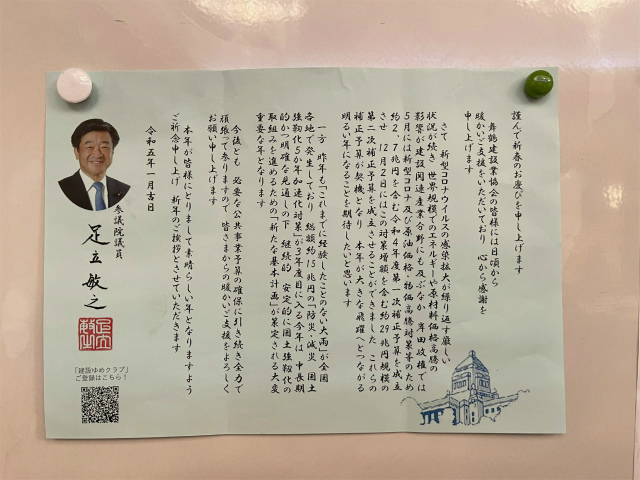 謹んで新春のお慶びを申し上げます
舞鶴建設業協会の皆様には日頃から
暖かいご支援をいただいており 心から感謝を
申し上げます
さて 新型コロナウイルスの感染拡大が繰り返す厳しい
状況が続き 世界規模でのエネルギーや原材料価格高騰の
影響が建設関連産業分野にも及ぶなか 岸田政権では
5月には新型コロナ及び原油価格・物価高騰対策等のため
約2.7兆円を含む令和4年度第一次補正予算を成立
させ 12月2日にはこの対策増額を含む約29兆円規模の
第二次補正予算を成立させることができました これらの
補正予算が契機となり 本年が大きな飛躍へとつながる
明るい年になることを期待したいと思います
一方 昨年も「これまでに経験したことのない大雨」が全国
各地で発生しており 総額約15兆円の「防災・減災 国土
強靭化5か年加速化対策」が3年度目に入る今年は 中長期
的かつ明確な見通しの下 継続的 安定的に国土強靭化の
取組みを進めるための「新たな基本計画」が策定される大変
重要な年となります
今後とも 必要な公共事業予算の確保に引き続き全力で
頑張って参りますので 皆さまからの暖かいご支援をよろしく
お願い申し上げます
本年が皆様にとりまして素晴らしい年となりますよう
ご祈念申し上げ 新年のご挨拶とさせていただきます
令和五年一月吉日
参議院議員
足立敏之
「建設ゆめクラブ」
ご登録はこちら!